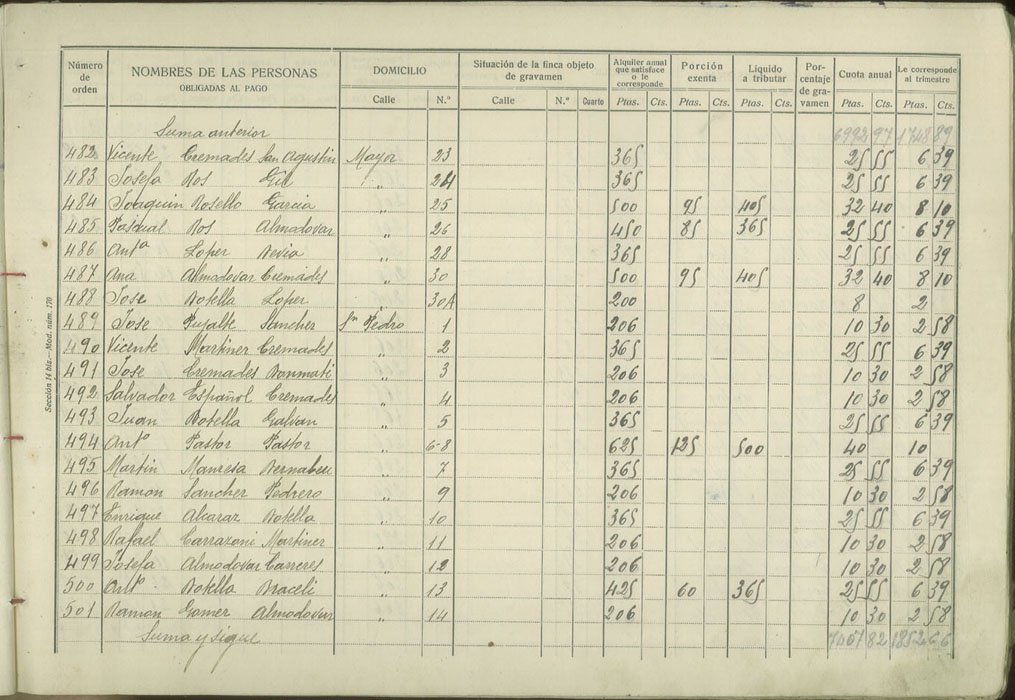 Número de orden | NOMBRES DE LAS PERSONAS OBLIGADAS AL PAGO | DOMICILIO | Situación de la finca objeto de gravamen | Alquiler anual que satisface o le corresponde | Porción exenta | Líquido a tributar | Porcentaje de gravamen | Cuota anual | Le corresponde al trimestre
Calle | N.º | Calle | N.º | Cuarto | Ptas. | Cts. | Ptas. | Cts. | Ptas. | Cts. | Ptas. | Cts. | Ptas. | Cts.
Suma anterior 6992 97 1748 89
482 Vicente Cremades San Agustin Mayor 23 365 25 55 6 39
483 Josefa Ros Gil " 24 365 25 55 6 39
484 Joaquin Rosello Garcia " 25 500 95 405 32 40 8 10
485 Pascual Ros Almodovar " 26 450 85 365 25 55 6 39
486 Antª Loper Devia " 28 365 25 55 6 39
487 Ana Almodovar Cremades " 30 500 95 405 32 40 8 10
488 Jose Botella Loper " 30A 200 8 2
489 Jose Pujalte Sancher Sn Pedro 1 206 10 30 2 58
490 Vicente Martiner Cremades " 2 365 25 55 6 39
491 Jose Cremades Bonmati " 3 206 10 30 2 58
492 Salvador Español Cremades " 4 206 10 30 2 58
493 Juan Botella Galvan " 5 365 25 55 6 39
494 Antº Pastor Pastor " 6-8 625 125 500 40 10
495 Martin Manresa Bernabeu " 7 365 25 55 6 39
496 Ramon Sancher Pedrero " 9 206 10 30 2 58
497 Enrique Alcarar Botella " 10 365 25 55 6 39
498 Rafael Carrazoni Martiner " 11 206 10 30 2 58
499 Josefa Almodovar Carreres " 12 206 10 30 2 58
500 Antº Botella Braceli " 13 425 60 365 25 55 6 39
501 Ramon Gomer Almodovar " 14 206 10 30 2 58
Suma y sigue 82 1852 66
Sección 14 bis.—Mod. núm. 170